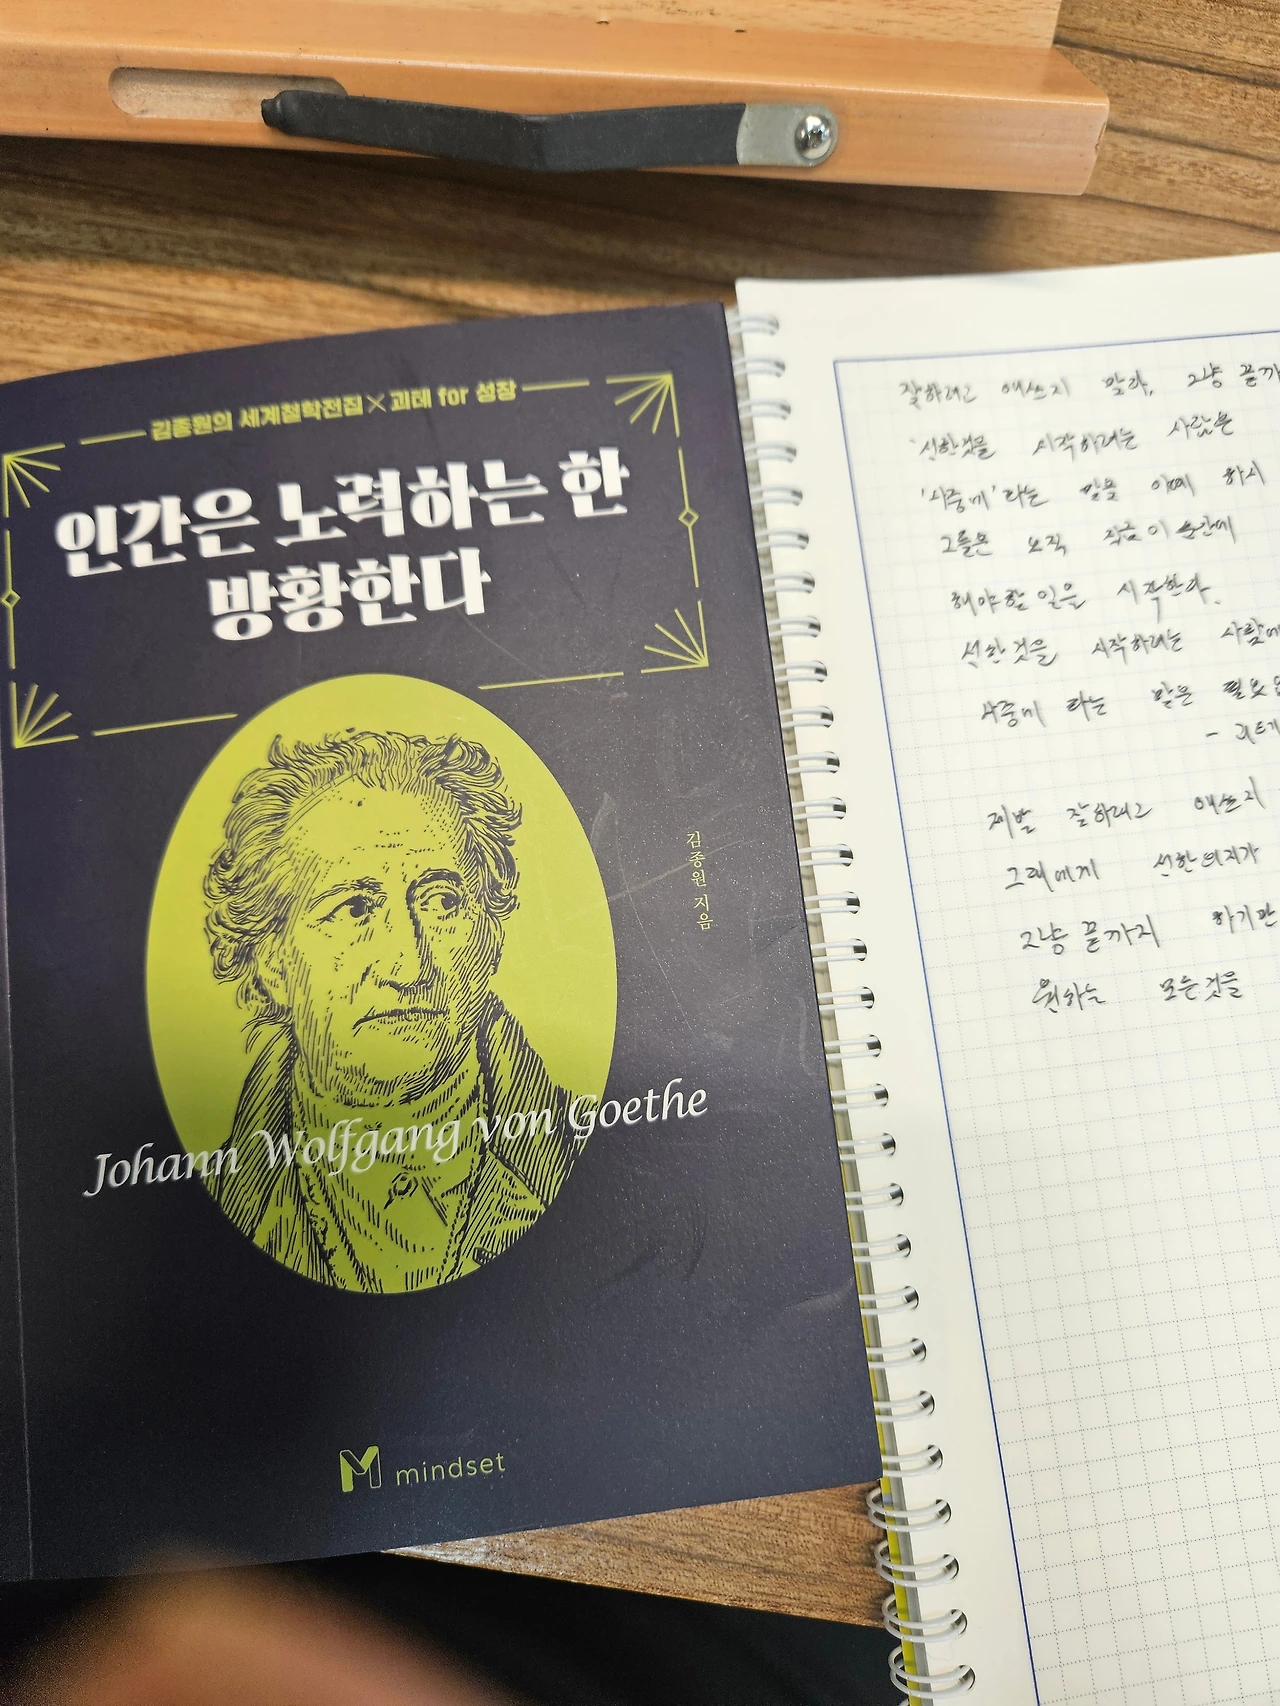 김종원의 세계철학전집×괴테 for 성장
인간은 노력하는 한
방황한다
김종원 지음
Johann Wolfgang von Goethe
M mindset
잘하려고 애쓰지 말라, 그냥 끝까
'선한것을 시작하려는 사람은
'나중에'라는 말을 아예 하지
그들은 오직 지금 이 순간에
해야할 일을 시작한다.
선한 것을 시작하려는 사람에
나중에 라는 말은 필요
- 괴테
제발 잘하려고 애쓰지
그대에게 선한 의지가
그냥 끝까지 하기만
원하는 모든것을